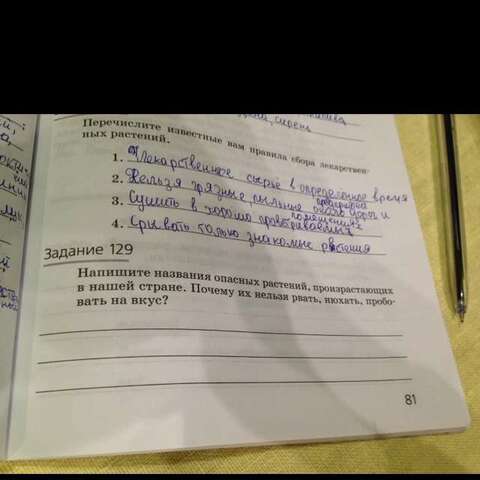 сирень
Перечислите известные вам правила сбора лекарствен-
ных растений.
1. Лекарственное сырьё в определённое время
2. Нельзя грязные пыльные около дорог и
3. Сушить в хорошо проветриваемых помещениях
4. Срывать только знакомые растения
Задание 129
Напишите названия опасных растений, произрастающих
в нашей стране. Почему их нельзя рвать, нюхать, пробо-
вать на вкус?
81